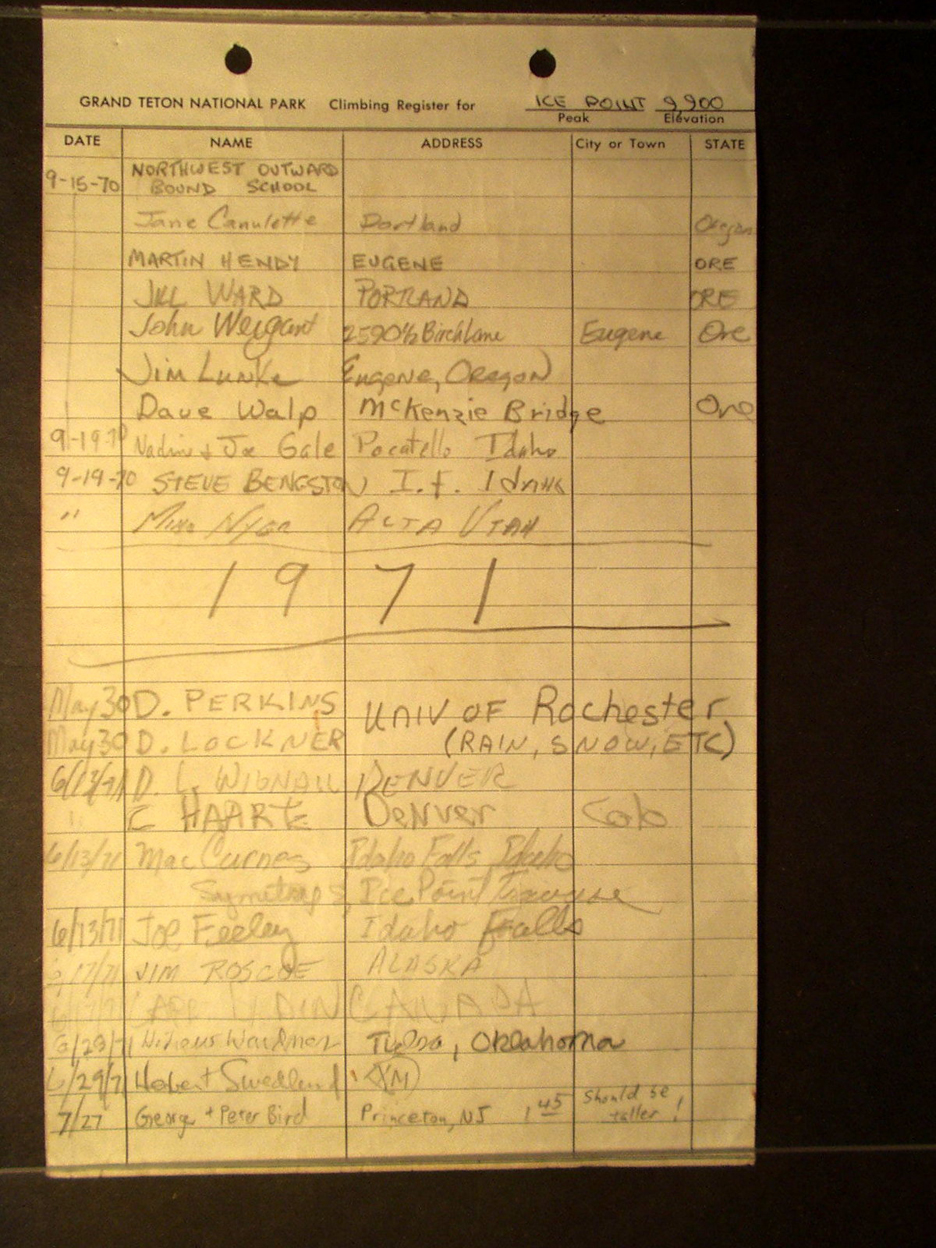 GRAND TETON NATIONAL PARK Climbing Register for ICE POINT 9,900
Peak Elevation
DATE NAME ADDRESS City or Town STATE
9-15-70 NORTHWEST OUTWARD
BOUND SCHOOL
Jane Canulette Portland Oregon
MARTIN HENDY EUGENE ORE
JILL WARD PORTLAND ORE
John Weigant 2590½ Birch Lane Eugene Ore
Jim Lunke Eugene, Oregon
Dave Walp McKenzie Bridge Ore
9-19-70 Nadine & Joe Gale Pocatello Idaho
9-19-70 STEVE BENGSTON I.F. Idaho
" NYER ALTA UTAH
1971
May 30 D. PERKINS UNIV OF Rochester
May 30 D. LOCKNER (RAIN, SNOW, ETC)
6/13/71 D. L. WIGNALL DENVER
" C Denver Colo
6/13/71 Mac Idaho Falls, Idaho
Ice Point Traverse
6/13/71 Joe Feeley Idaho Falls
17/71 JIM ROSCOE ALASKA
CANADA
Tulsa, Oklahoma
6/29/71 Swedlund
7/27 George + Peter Bird Princeton, NJ 1 45 Should be
taller!